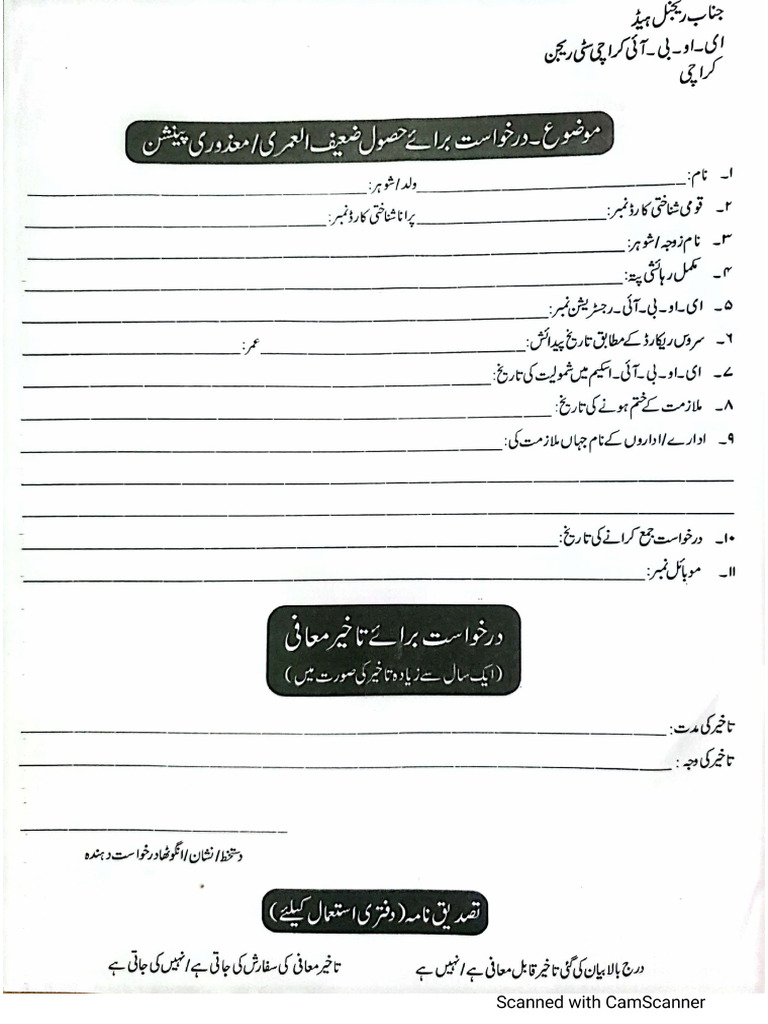 جناب ریجنل ہیڈ
ای۔او۔بی۔آئی کراچی سٹی ریجن
کراچی
موضوع۔درخواست برائے حصول ضعیف العمری/معذوری پینشن
۱۔ نام: ولد/شوہر:
۲۔ قومی شناختی کارڈ نمبر: پرانا شناختی کارڈ نمبر:
۳۔ نام زوجہ/شوہر:
۴۔ مکمل رہائشی پتہ:
۵۔ ای۔او۔بی۔آئی۔رجسٹریشن نمبر:
۶۔ سروس ریکارڈ کے مطابق تاریخ پیدائش: عمر:
۷۔ ای۔او۔بی۔آئی۔اسکیم میں شمولیت کی تاریخ:
۸۔ ملازمت کے ختم ہونے کی تاریخ:
۹۔ ادارے/اداروں کے نام جہاں ملازمت کی:
۱۰۔ درخواست جمع کرانے کی تاریخ:
۱۱۔ موبائل نمبر:
درخواست برائے تاخیر معافی
(ایک سال سے زیادہ تاخیر کی صورت میں)
تاخیر کی مدت:
تاخیر کی وجہ:
دستخط/نشان/انگوٹھا درخواست دہندہ
تصدیق نامہ (دفتری استعمال کیلئے)
درج بالا بیان کی گئی تاخیر قابل معافی ہے/نہیں ہے تاخیر معافی کی سفارش کی جاتی ہے/نہیں کی جاتی ہے
Scanned with CamScanner